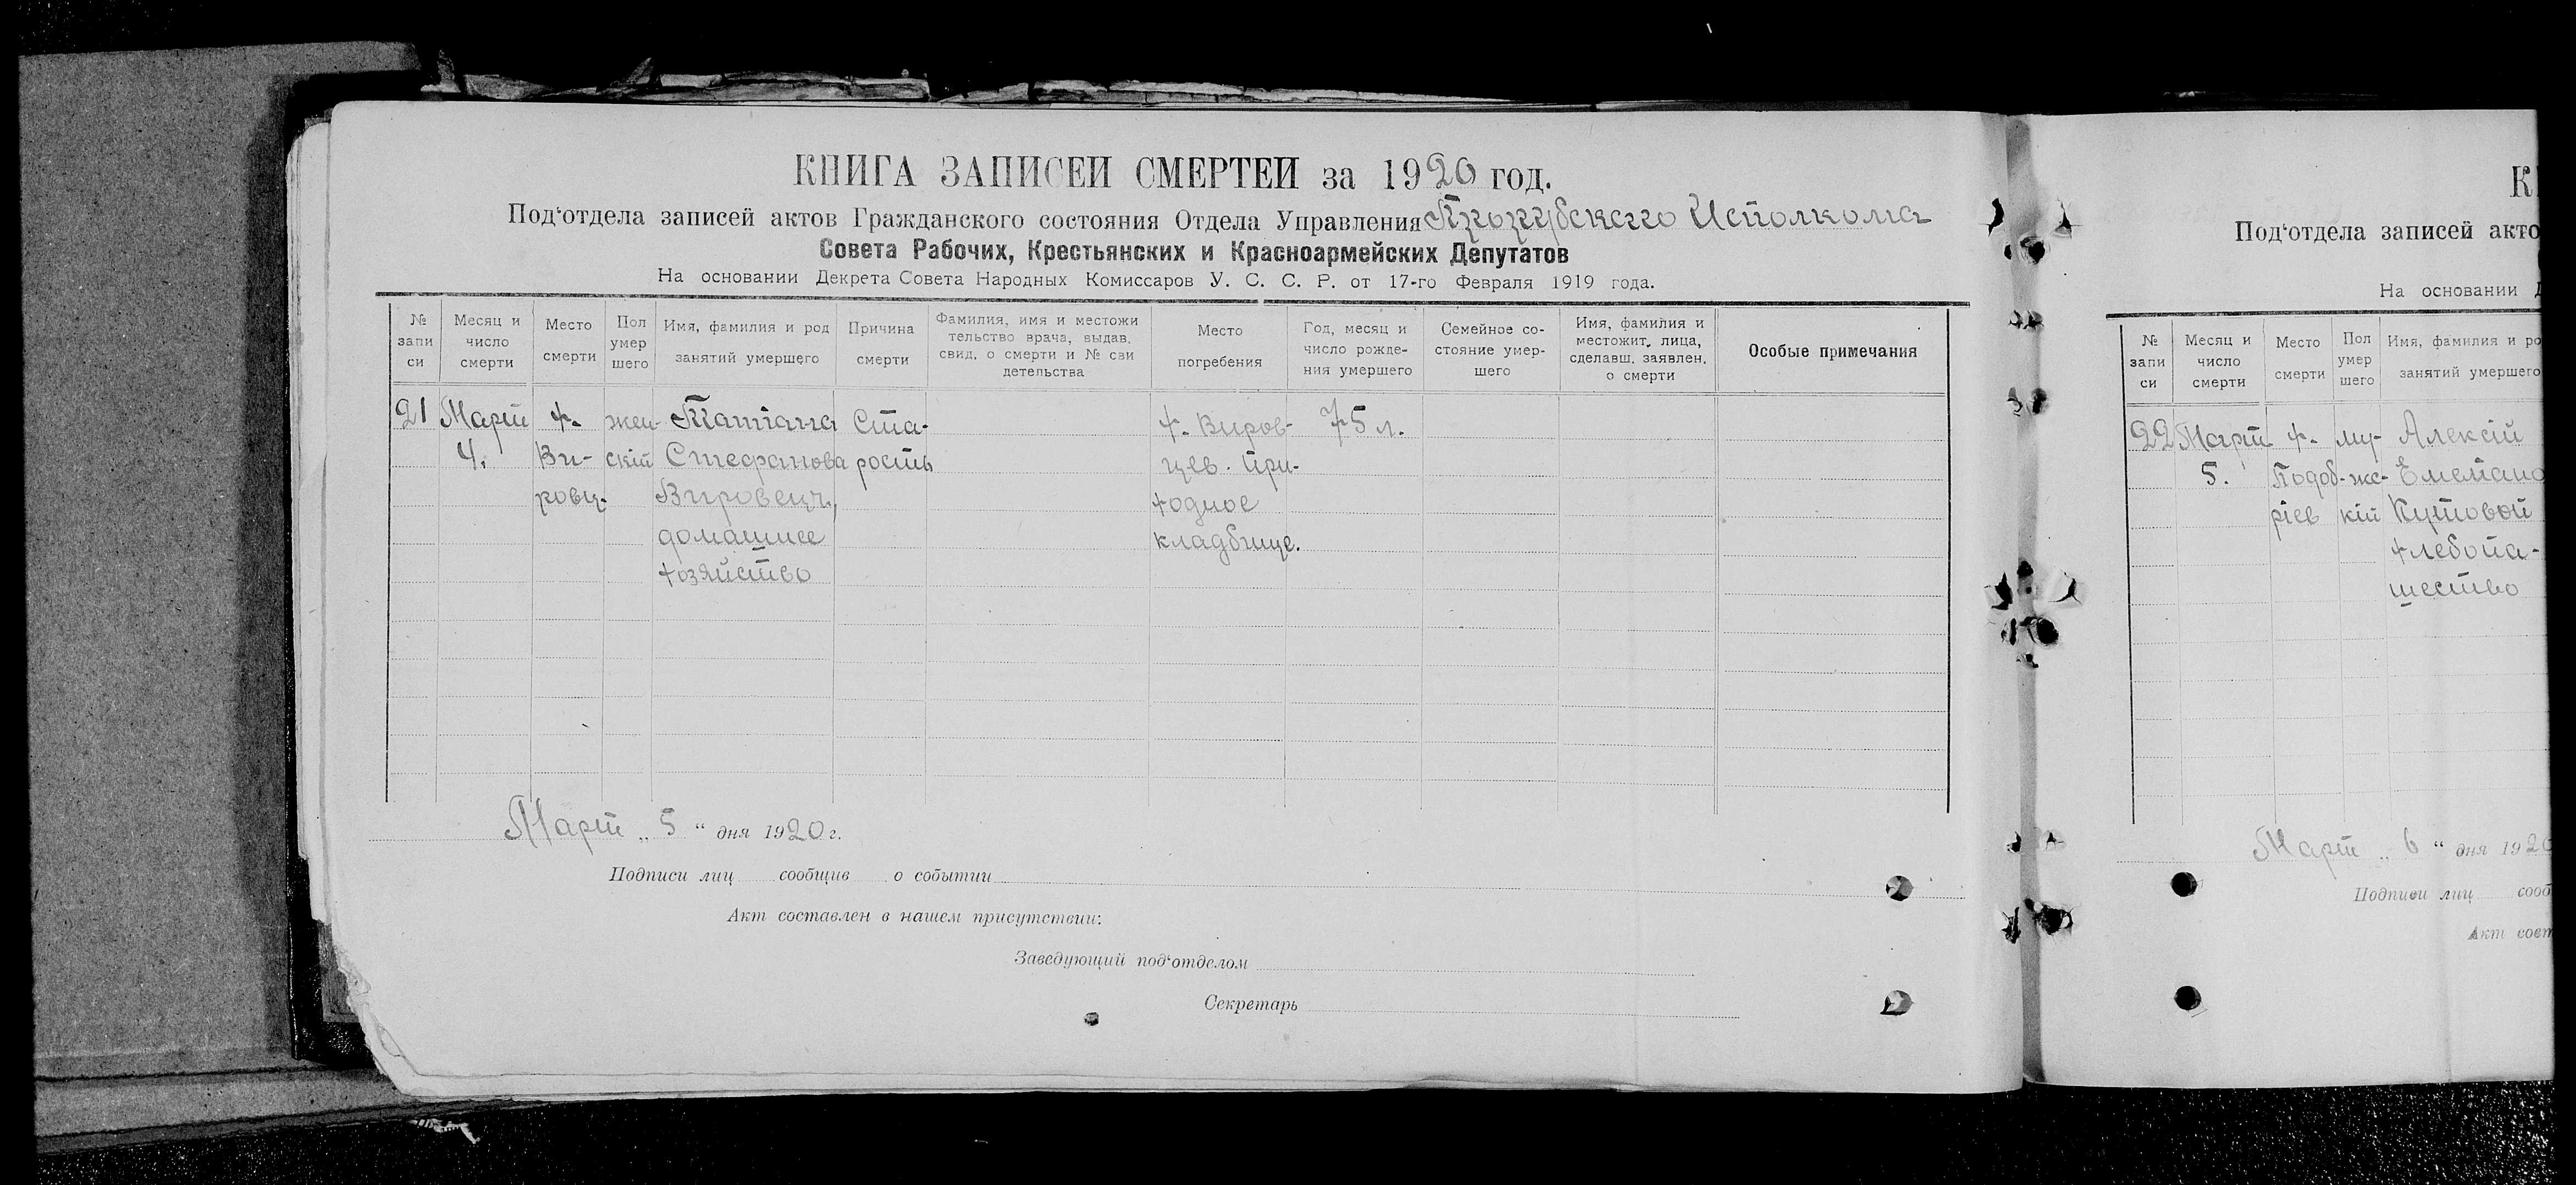 КНИГА ЗАПИСЕЙ СМЕРТЕЙ за 1920 год.
Под‘отдела записей актов Гражданского состояния Отдела Управления Исполкома
Совета Рабочих, Крестьянских и Красноармейских Депутатов
На основании Декрета Совета Народных Комиссаров У. С. С. Р. от 17-го Февраля 1919 года.
№ запи си
Месяц и число смерти
Место смерти
Пол умер шего
Имя, фамилия и род занятий умершего
Причина смерти
Фамилия, имя и местожи тельство врача, выдав. свид. о смерти и № сви детельства
Место погребения
Год, месяц и число рожде- ния умершего
Семейное со- стояние умер- шего
Имя, фамилия и местожит. лица, сделавш. заявлен. о смерти
Особые примечания
21 Март х. жен- Татіана Ста- х. Виров- 75 л.
4. Ви- скій Стефанова рость цев. При-
ровц. Вировець, ходное
домашнее кладбище.
хозяйство
Март „ 5 “ дня 1920 г.
Подписи лиц сообщив о событии
Акт составлен в нашем присутствии:
Заведующий под‘отделом
Секретарь
К
Под‘отдела записей акто
На основании Д
№ запи си
Месяц и число смерти
Место смерти
Пол умер шего
Имя, фамилия и ро занятий умершего
22 Март х. му- Алексій
5. Подоб- жс- Емелiано
ріев кій Кутовой
хлебопа-
шество
Март „ 6 “ дня 1920
Подписи лиц сооб
Акт сост